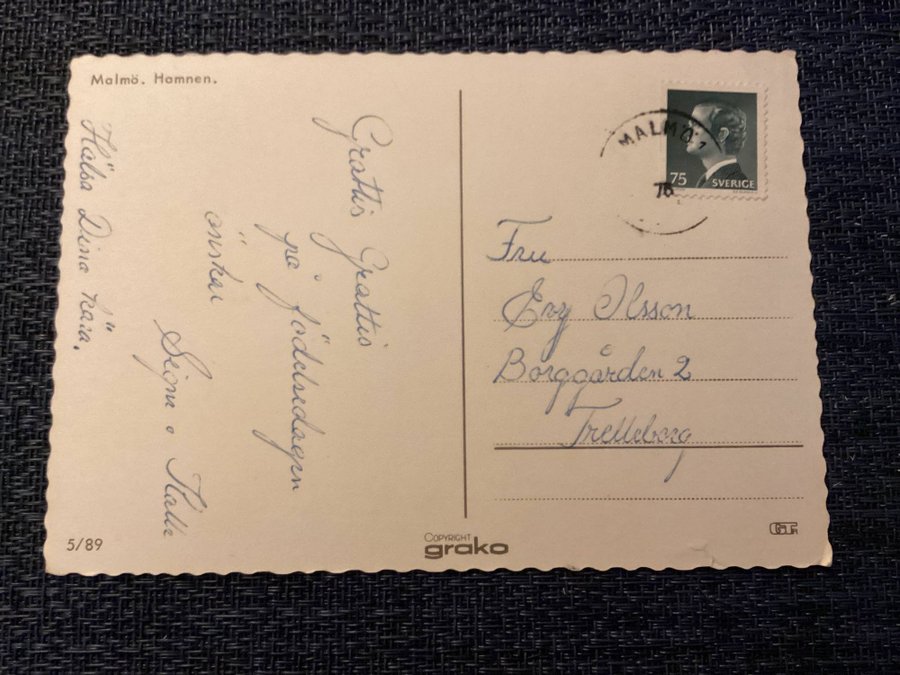 Malmö. Hamnen.
Grattis Grattis
på födelsedagen
önskar
Kalle
Hälsa Dina kära.
5/89
COPYRIGHT
grako
MALMÖ 1
76
75 SVERIGE
Fru
Evy Olsson
Borggården 2
Trelleborg